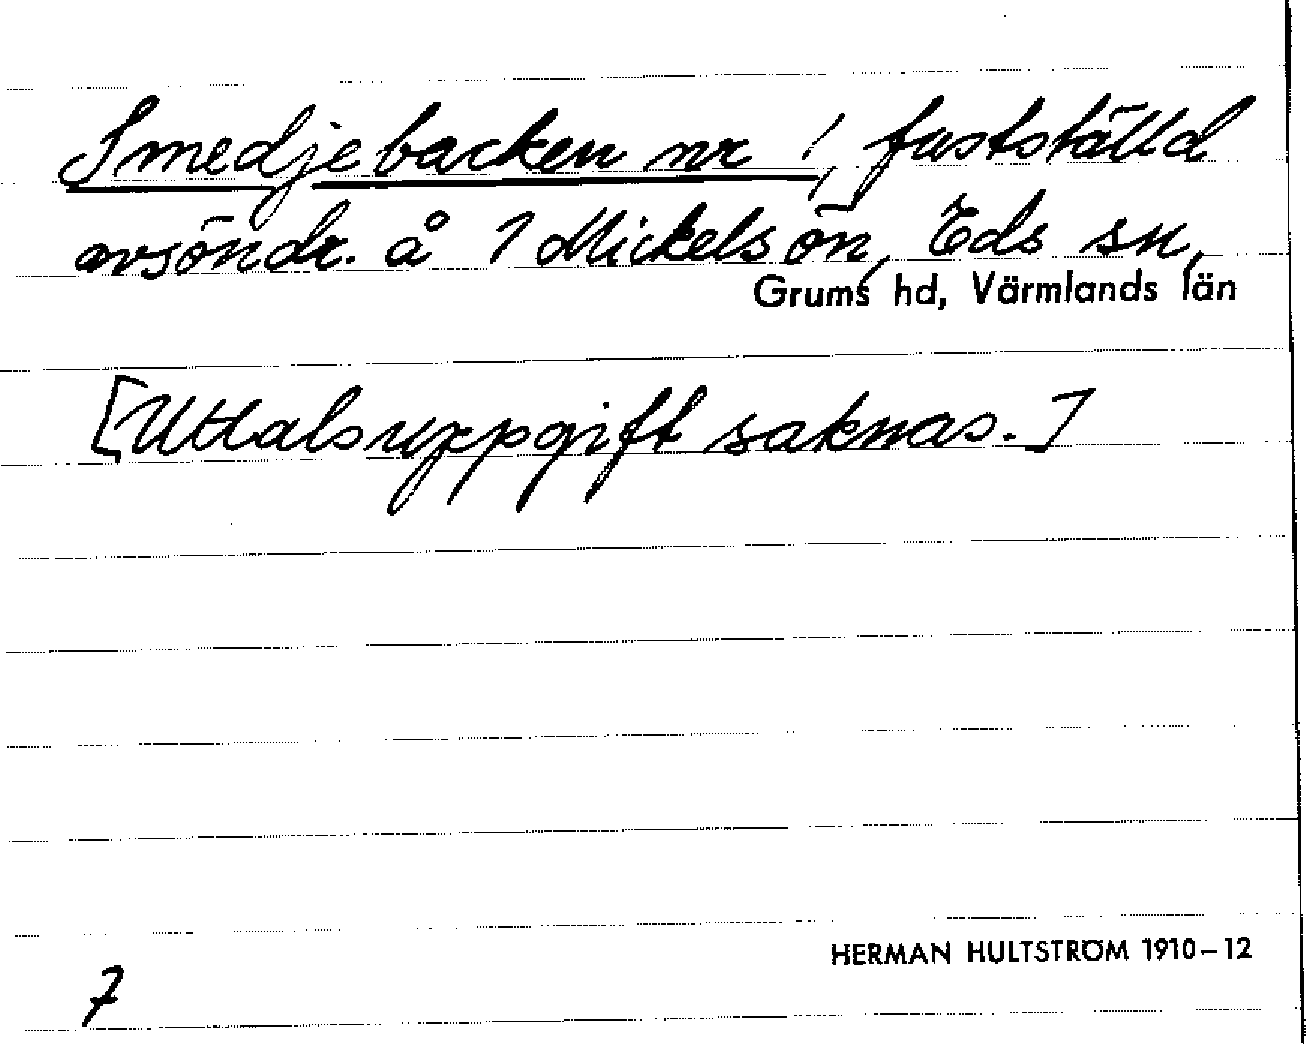 Smedjebacken nr 1, fastställd
avsöndr. å 1 Mickelsön, Eds sn,
Grums hd, Värmlands län
[Uttalsuppgift saknas.]
HERMAN HULTSTRÖM 1910–12
7